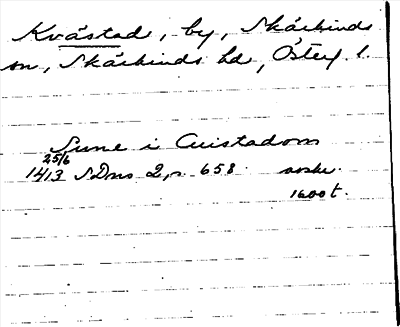 Kvästad, by, Skärkinds
sn, Skärkinds hd, Östergl.
Sune i Cuistadom
25/6
1413 SDns 2, s. 658 avskr.
1600 t.